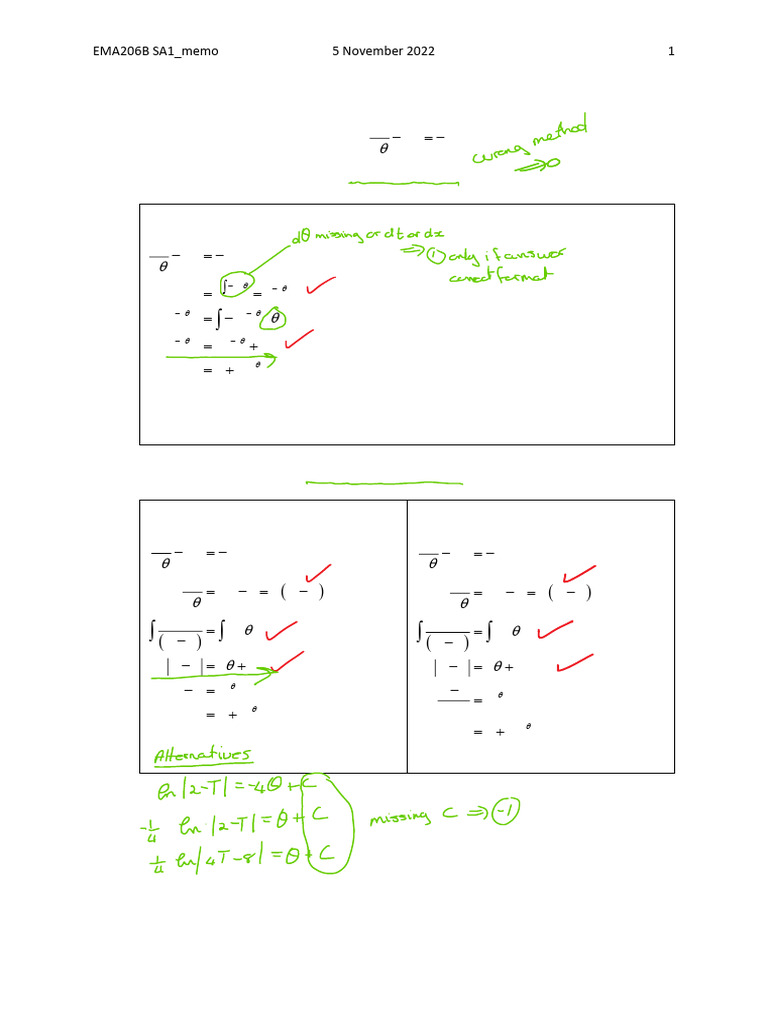 EMA206B SA1_memo 5 November 2022 1
θ − = −
wrong method
⇒ 0
dθ missing or dt or dx
⇒ ① only if answer
correct format
θ − = −
= ∫− θ = − θ
− θ = ∫ − − θ θ
− θ = − θ +
= + θ
θ − = −
θ = − = ( − )
∫ ( − ) = ∫ θ
| − | = θ +
− = θ
= + θ
θ − = −
θ = − = ( − )
∫ ( − ) = ∫ θ
| − | = θ +
− = θ
= + θ
Alternatives
ln |2-T| = -4θ + C
-1/4 ln |2-T| = θ + C
missing C ⇒ -1
1/4 ln |4T-8| = θ + C